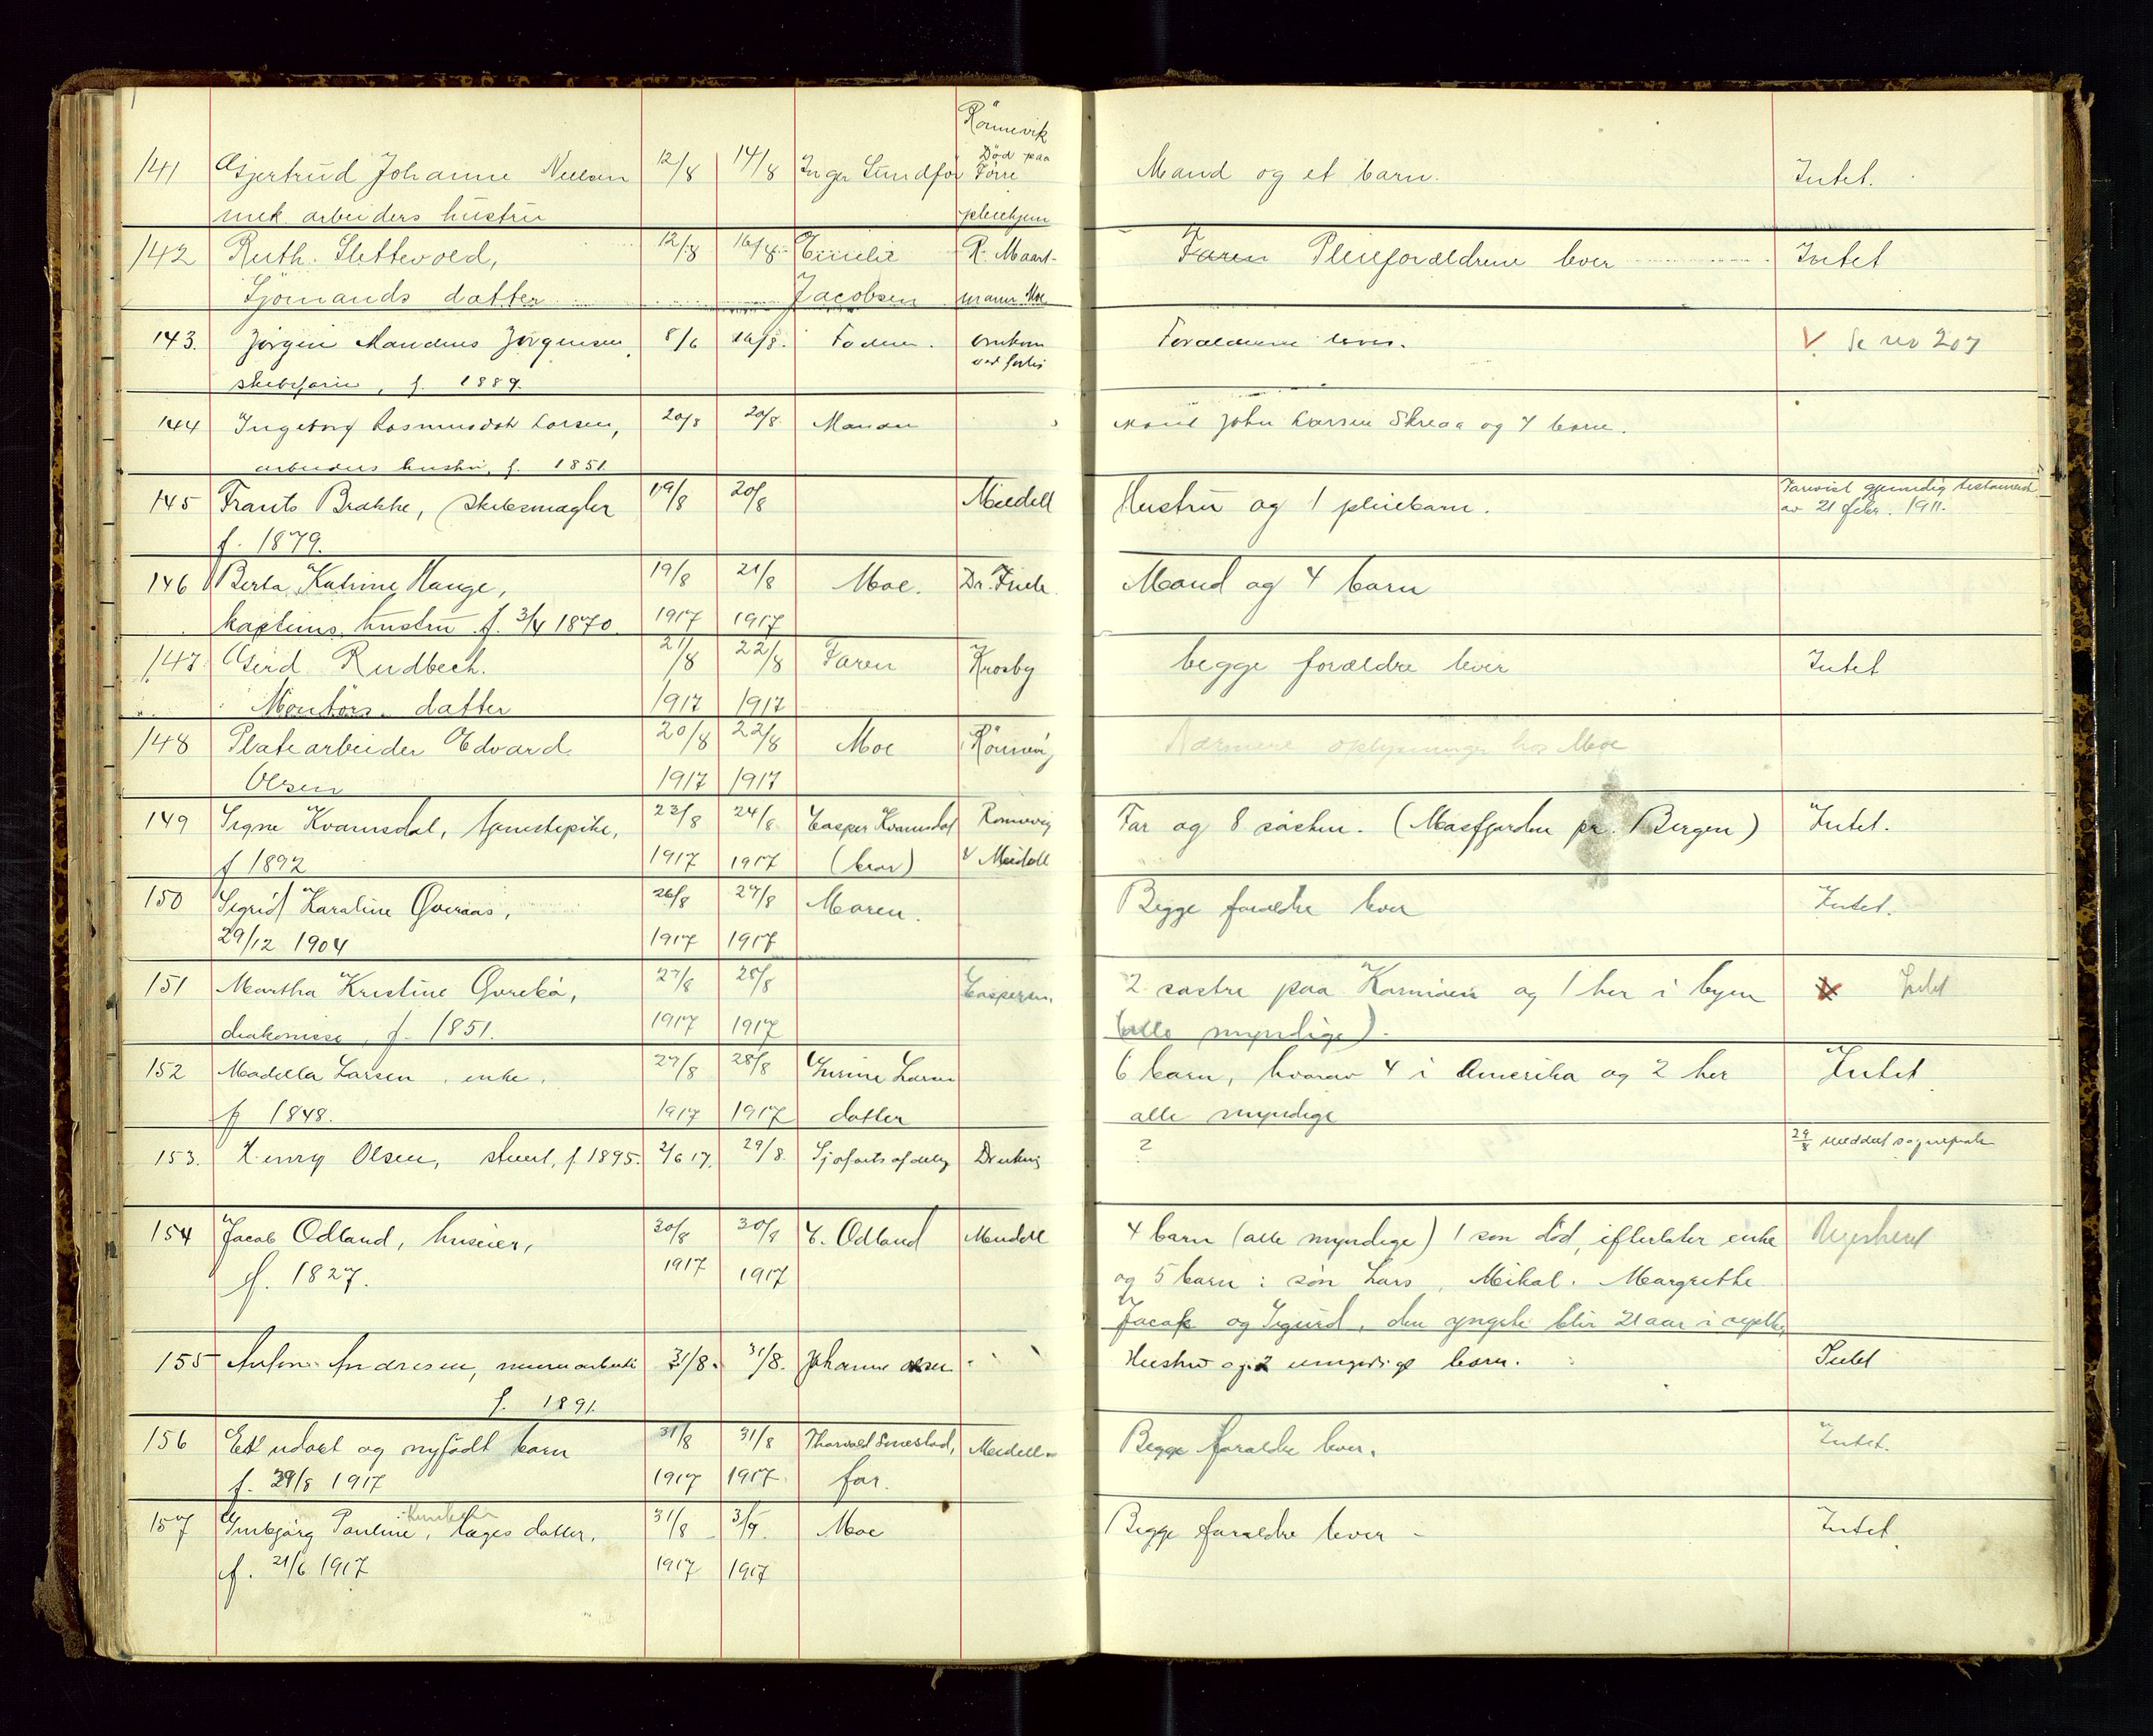 Rönnevik
Död paa
141 Gjertrud Johanne Nielsen 12/8 14/8 Inger SundförFörre Mand og et barn. Intet.
mek arbeiders hustru pleiehjem
142 Ruth Slettevold, 12/8 16/8 Emilie R. Maart- Faren Pleieforældrene lever Intet
Sjömands datter Jacobsen mann Moe
143. Jörgen Mandius Jörgensen, 8/6 16/8. Faderen. omkom Forældrene lever. V. Se no 207
f. 1889. ved forlis
144 Ingeborg Rasmusdtr Larsen, 20/8 20/8. Manden Mand John Larsen Skreaa og 7 barn.
arbeiders hustru, f. 1851.
145 Frants Brække, skibsmægler 19/8 20/8 Meidell Hustru og 1 pleiebarn. gjensidig testament
f. 1879. av 21 febr. 1911.
146 Berta Katrine Hauge, 19/8 21/8 Moe. Dr. Mand og 4 barn
kapteins hustru f. 3/4 1870. 1917 1917
147. Gerd Rudbech. 21/8 22/8 Faren Krosby begge forældre lever Intet
Montörs datter 1917 1917
148 Platearbeider Edvard 20/8 22/8 Moe Rönnevig Nærmere oplysninger hos Moe
Olsen 1917 1917
149 Signe Kvamsdal, tjenestepike, 23/8 24/8 Casper Kvamsdal Rönnevig Far og 8 søsken. (Masfjorden pr. Bergen) Intet.
f 1892 1917 1917 (bror) v Meidell
150 Sigrid Karoline Gveraas, 26/8 27/8 Moren. Begge forældre lever Intet.
29/12 1904 1917 1917
151 Martha Kristine 27/8 28/8 Caspersen. 2 søstre paa Karmöen og 1 her i byen V Intet
diakonisse, f. 1851. 1917 1917 (alle myndige).
152 Madella Larsen, enke, 27/8 28/8 Gurine Larsen 6 barn, hvorav 4 i Amerika og 2 her Intet
f 1848. 1917 1917 datter alle myndige
153. Henry Olsen, stuert, f. 1895. 2/6 17. 29/8. Sjøfartsafdelg ? 29/8 meddelt
154 Jacob Odland, huseier, 30/8 30/8 E. Odland Meidell 4 barn (alle myndige) 1 søn død, efterlater enke
f. 1827. 1917 1917 og 5 barn: søn Lars, Mikal. Margrethe
Jacob og Sigurd, den yngste blir 21 aar i septbr,
155 Anton Andresen, murarbeider 31/8. 31/8. Johanne Hustru og 2 umyndige barn. Intet
f. 1891.
156 Et udøbt og nyfødt barn 31/8 31/8 Thorvald far. Meidell Begge forældre lever. Intet.
f. 29/8 1917 1917 1917
157 Ingbjørg Pauline, læges datter, 31/8 3/9. Moe Begge forældre lever - Intet.
f. 21/6 1917 1917 1917